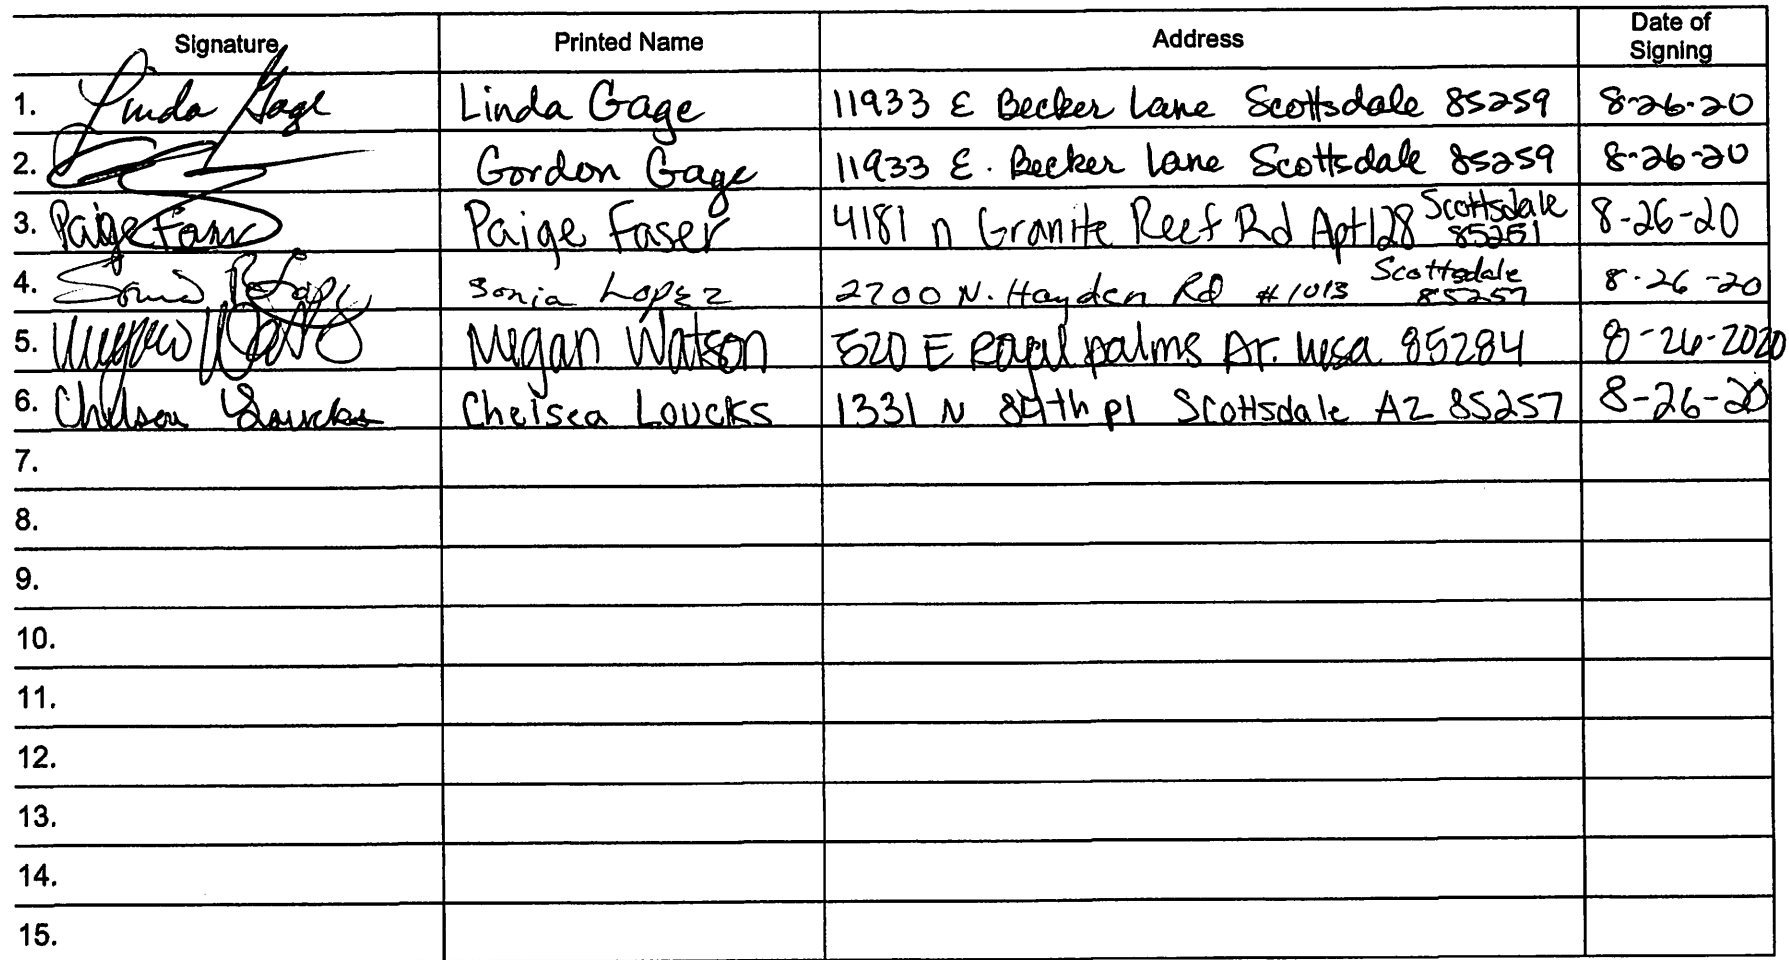 Signature Printed Name Address Date of Signing
1. Linda Gage Linda Gage 11933 E Becker Lane Scottsdale 85259 8-26-20
2. Gordon Gage 11933 E. Becker Lane Scottsdale 85259 8-26-20
3. Paige Paige Faser 4181 n Granite Reef Rd Apt 128 Scottsdale 85251 8-26-20
4. Sonia Lopez Sonia Lopez 2700 N. Hayden Rd #1013 Scottsdale 85257 8-26-20
5. Megan Watson Megan Watson 520 E palms Mesa 85284 8-26-2020
6. Chelsea Loucks Chelsea Loucks 1331 N 84th pl Scottsdale AZ 85257 8-26-20
7.
8.
9.
10.
11.
12.
13.
14.
15.